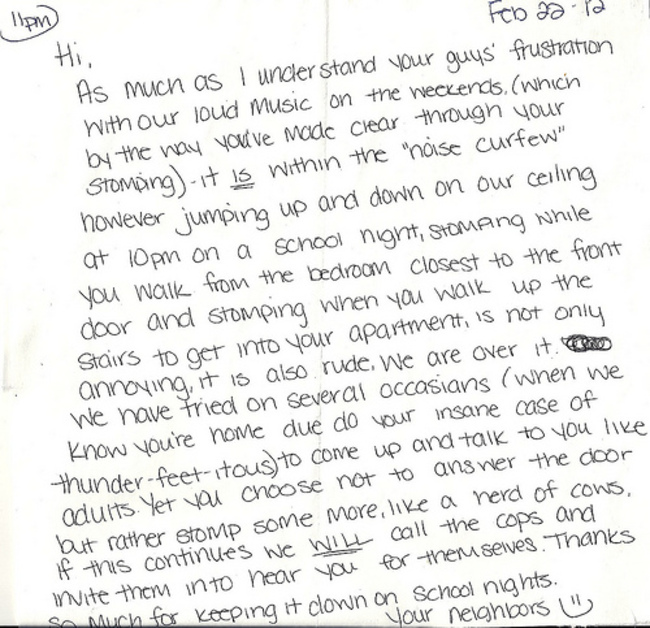 11pm
Feb 22-12
Hi,
As much as I understand your guys' frustration
with our loud music on the weekends, (which
by the way you've made clear through your
stomping)-it is within the "noise curfew"
however jumping up and down on our ceiling
at 10pm on a school night, stomping while
you walk from the bedroom closest to the front
door and stomping when you walk up the
stairs to get into your apartment, is not only
annoying, it is also rude. We are over it.
We have tried on several occasians (when we
know you're home due do your insane case of
thunder-feet-itous) to come up and talk to you like
adults. Yet you choose not to answer the door
but rather stomp some more, like a herd of cows.
If this continues we WILL call the cops and
invite them in to hear you for themselves. Thanks
so much for keeping it down on school nights.
Your neighbors